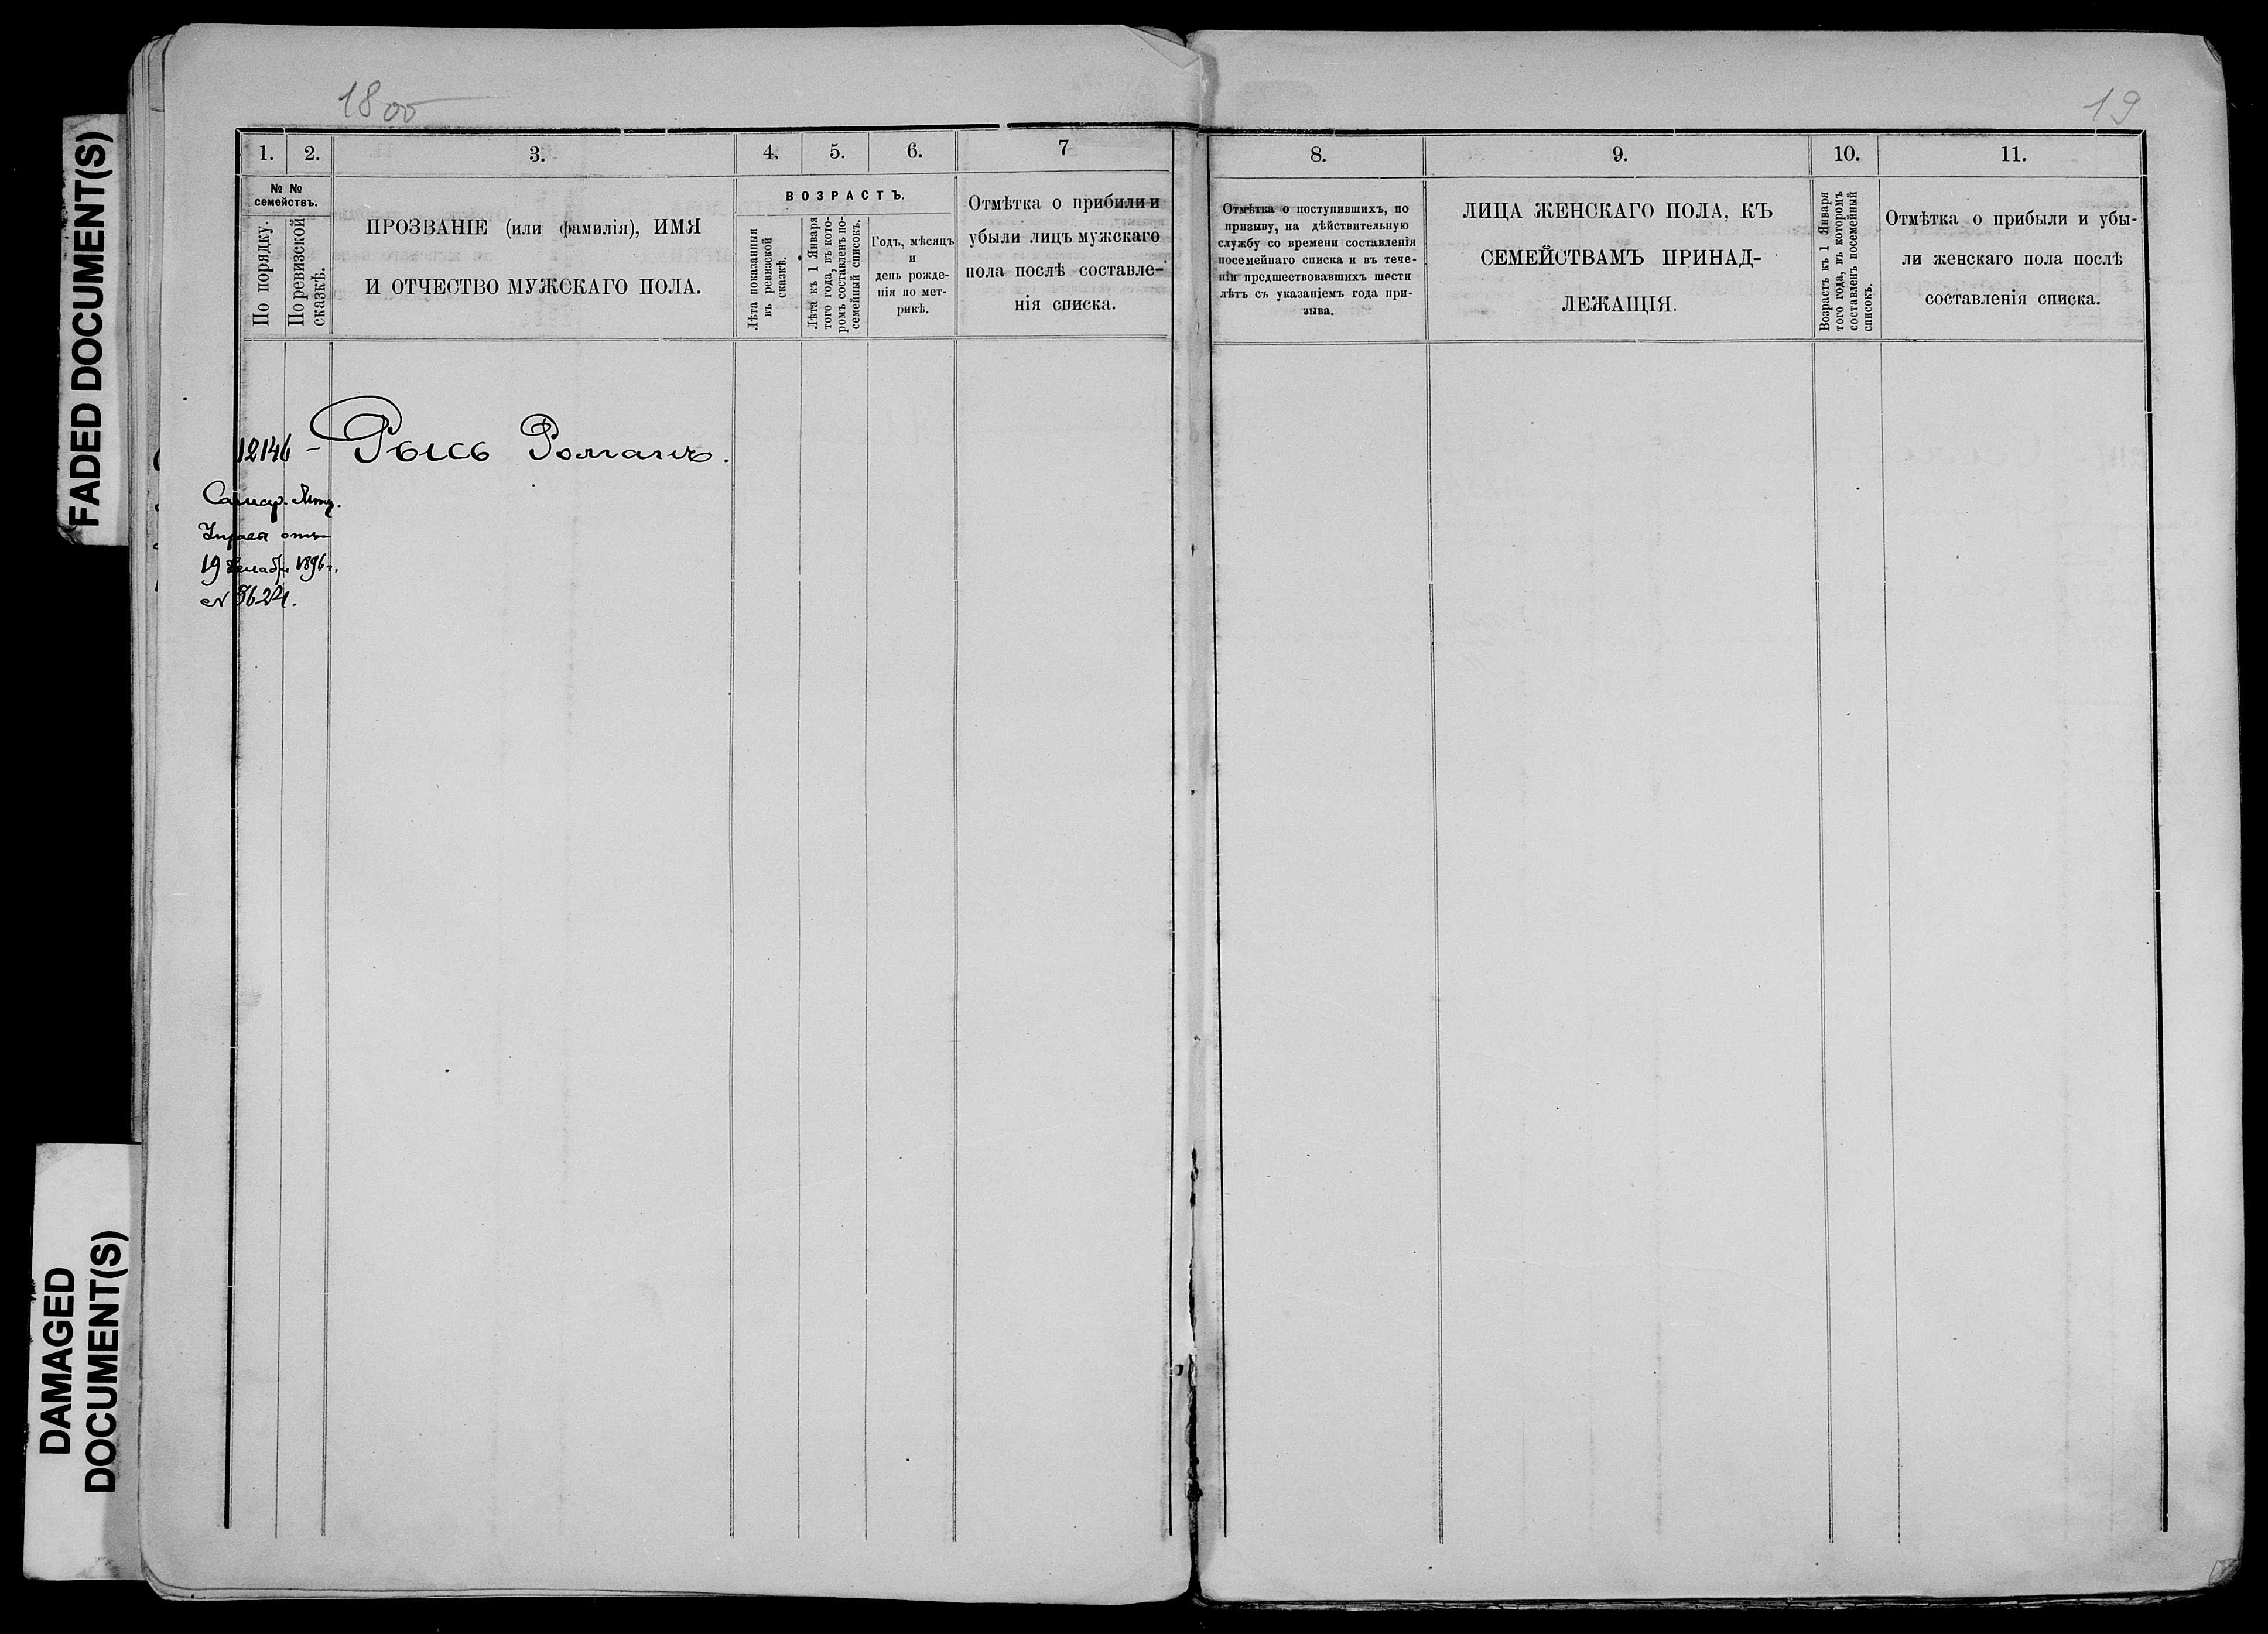 FADED DOCUMENT(S)
DAMAGED
DOCUMENT(S)
1800
1.
2.
3.
4.
5.
6.
7
№ №
семействъ.
По порядку.
По ревизской
сказкѣ.
ПРОЗВАНІЕ (или фамилія), ИМЯ
И ОТЧЕСТВО МУЖСКАГО ПОЛА.
ВОЗРАСТЪ.
Лѣта показанныя
въ ревизской
сказкѣ.
Лѣта къ 1 Января
того года, въ кото-
ромъ составленъ по-
семейный списокъ.
Годъ, мѣсяцъ
и
день рожде-
нія по мет-
рикѣ.
Отмѣтка о прибыли и
убыли лицъ мужскаго
пола послѣ составле-
нія списка.
12146 - Рысь Романъ.
Самар.
Управы отъ
19 Декабря 1896 г.
№ 3624.
19
8.
9.
10.
11.
Отмѣтка о поступившихъ, по
призыву, на дѣйствительную
службу со времени составленія
посемейнаго списка и въ тече-
ніи предшествовавшихъ шести
лѣтъ съ указаніемъ года при-
зыва.
ЛИЦА ЖЕНСКАГО ПОЛА, КЪ
СЕМЕЙСТВАМЪ ПРИНАД-
ЛЕЖАЩІЯ.
Возрастъ къ 1 Января
того года, въ которомъ
составленъ посемейный
списокъ.
Отмѣтка о прибыли и убы-
ли женскаго пола послѣ
составленія списка.